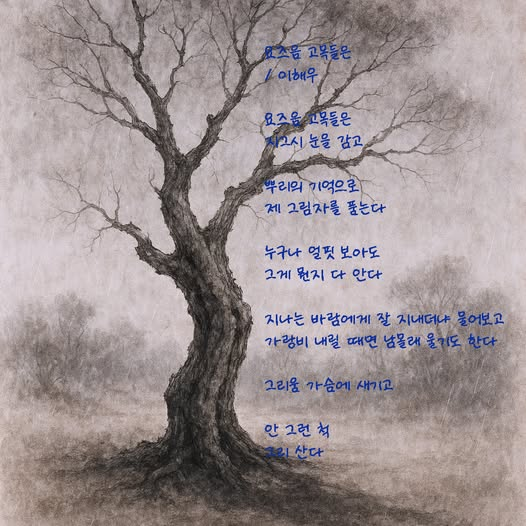 요즈음 고목들은
/ 이해우
요즈음 고목들은
지그시 눈을 감고
뿌리의 기억으로
제 그림자를 품는다
누구나 얼핏 보아도
그게 뭔지 다 안다
지나는 바람에게 잘 지내더냐 물어보고
가랑비 내릴 때면 남몰래 울기도 한다
그리움 가슴에 새기고
안 그런 척
그리 산다